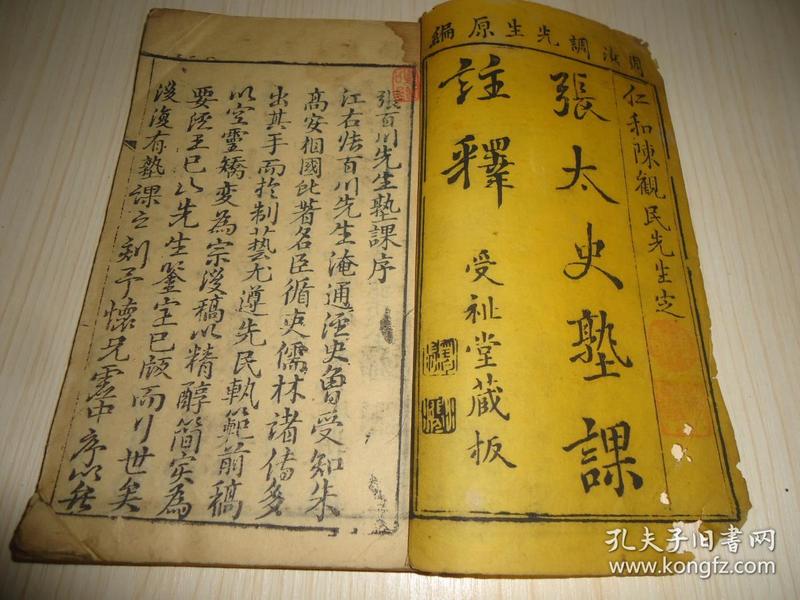 周汝調先生原編
仁和陳觀民先生定
張太史塾課
註釋
受祉堂蔵板
張百川先生塾課序
江右張百川先生淹通經史曾受知朱
高安相國此著名臣循吏儒林諸傳多
出其手而於制藝尤遵先民軌範前稿
以空靈矯變為宗後稿以精醇簡实為
要陸王已以先生鑒定已版而行世矣
後復有塾課之刻予懷兄雲中序以行
孔夫子旧书网
www.kongfz.com